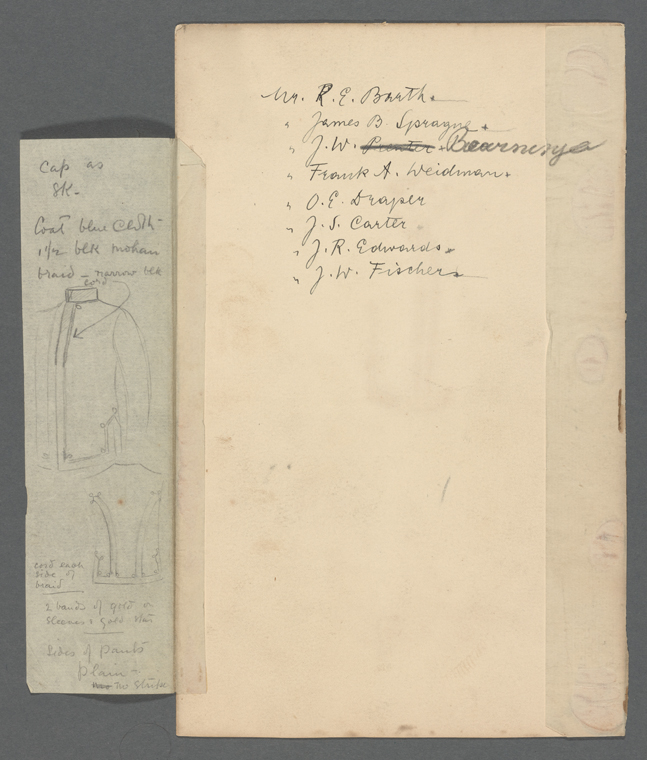 cap as
SK-
Coat blue Cloth-
1 1/2 blk mohair
braid - narrow blk
cord
cord each
side of
braid
2 bands of gold on
sleeves & gold star
Sides of pants
plain -
no stripe
Mr. R. E. Barth.
" James B. Sprague.
" J. W.
" Frank A. Weidman.
" O. E. Draper
" J. S. Carter
" J. R. Edwards.
" J. W. Fischer.